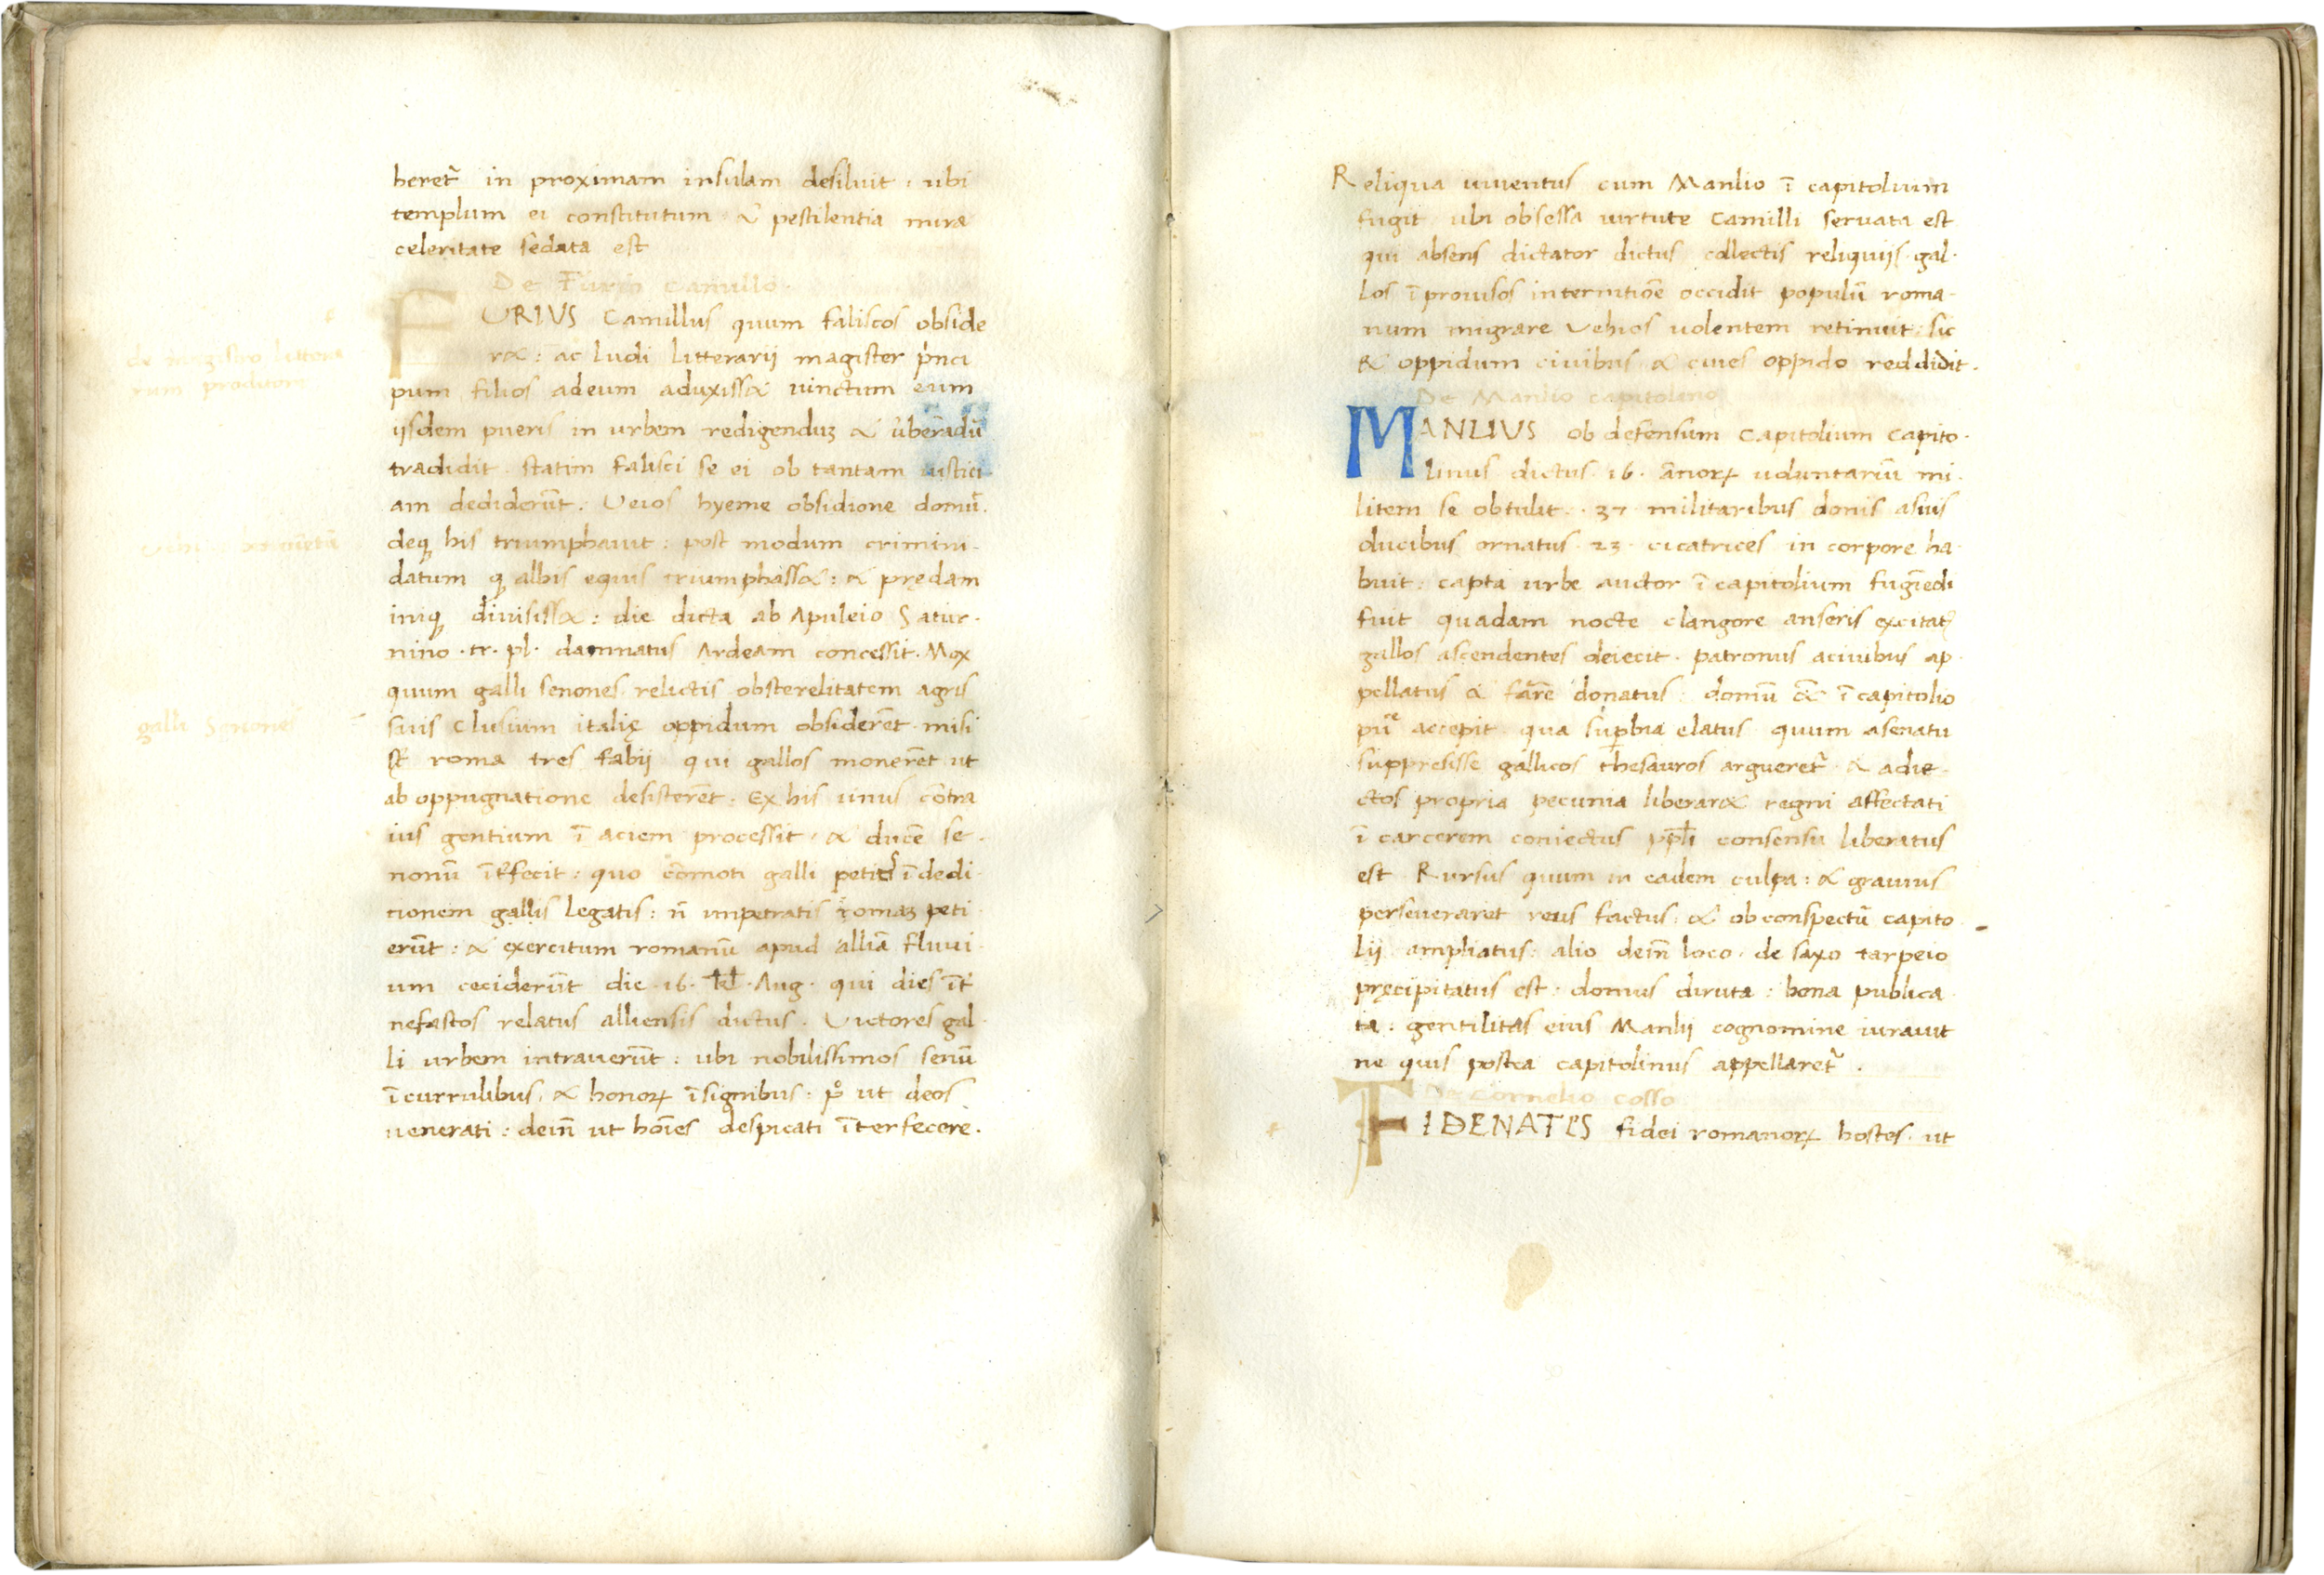 beret᷑ in proximam insulam desiluit · ubi
templum ei constitutum & pestilentia mira
celeritate sedata est
De Furio Camillo
FURIUS Camillus quum faliscos obside
r& : ac ludi litterarij magister p̍nci
pum filios adeum aduxiss& uinctum eum
de magistro littera
rum proditore
ijsdem pueris in urbem redigenduʒ & ũberãdũ
tradidit · statim falisci se ei ob tantam iustici
am dediderũt : Veios hyeme obsidione domũ·
deq̧ his triumphauit : post modum crimini·
datum q̧ albis equis triumphass& : & prędam
iniq̧ diuisiss& : die dicta ab Apuleio Satur·
nino · tr· pl· damnatus Ardeam concessit· Mox
quum galli senones relictis obsterelitatem agris
galli Senones
suis Clusium italię oppidum obsiderẽt misi
sũt roma tres fabij qui gallos monerẽt ut
ab oppugnatione desisterẽt : Ex his unus cõtra
ius gentium ĩ aciem processit · & ducẽ se·
nonũ ĩt᷑fecit : quo cõmoti galli petitis ĩ dedi·
tionem gallis legatis : ñ impetratis romaʒ peti
erũt : & exercitum romanũ apud alliã fluui·
um ceciderũt die · 16 · kl̵ · Aug · qui dies ĩt᷑
nefastos relatus alliensis dictus · Victores gal·
li urbem intrauerũt : ubi nobilissimos senũ
ĩ currulibus & honoꝝ ĩsignibus : pͦ ut deos
uenerati : deiñ ut hoĩes despicati ĩterfecere·
Reliqua iuuentus cum Manlio ĩ capitolium
fugit ubi obsessa uirtute Camilli seruata est
qui absens dictator dictus collectis reliquijs · gal·
los ĩprouisos internitiõe occidit populũ roma·
num migrare Vehios uolentem retinuit : sic
& oppidum ciuibus & ciues oppido reddidit ·
De Manlio capitolino
MANLIUS ob defensum Capitolium Capito·
linus dictus · 16 · ãnoꝝ uoluntariũ mi·
litem se obtulit · 37 · militaribus donis asuis
ducibus ornatus · 23 · cicatrices in corpore ha·
buit : capta urbe auctor ĩ capitolium fugĩedi
fuit quadam nocte clangore anseris excitatꝰ
gallos ascendentes deiecit · patronus aciuibus ap·
pellatus & farẽ donatus : domũ &̃ ĩ capitolio
pũᵉ accepit qua suꝑbia elatus quum asenatu
suppresisse gallicos thesauros argueret᷑ & adie·
ctos propria pecunia liberar& regni affectati
ĩ carcerem coniectus pp̅l̵i consensu liberatus
est Rursus quum in eadem culpa : & grauius
perseueraret reus factus : & ob conspectũ capito
lij ampliatus : alio deiñ loco · de saxo tarpeio
pręcipitatus est : domus diruta : bona publica
ta : gentilitas eius Manlij cognomine iurauit
ne quis postea capitolinus appellaret᷑ ·
De Cornelio cosso
FIDENATES fidei romanoꝝ hostes · ut